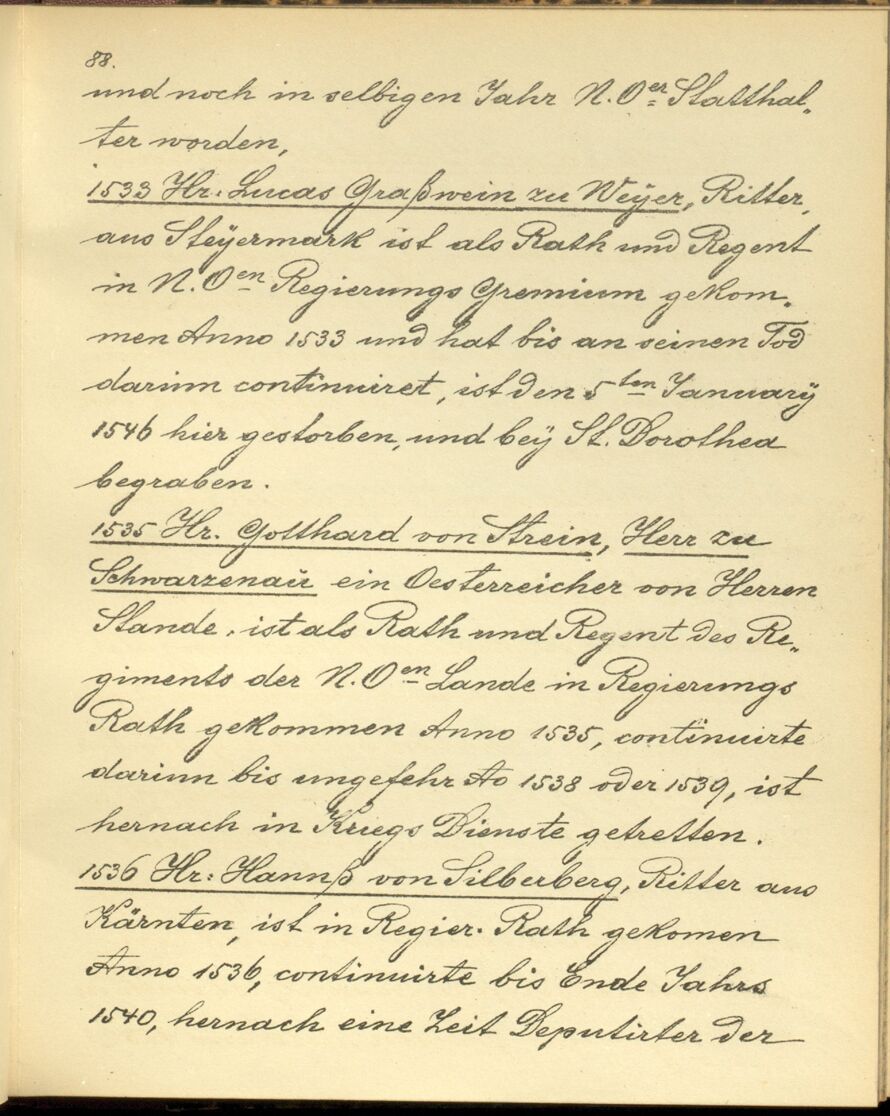 88.
und noch in selbigen Jahr N. Oer Statthal„
ter worden,
1533 Hr: Lucas Graßwein zu Weÿer, Ritter,
aus Steÿermark ist als Rath und Regent
in N. Oen Regierungs Gremium gekom„
men Anno 1533 und hat bis an seinen Tod
darinn continuiret, ist den 5ten Januarÿ
1546 hier gestorben, und beÿ St. Dorothea
begraben.
1535 Hr. Gotthard von Strein, Herr zu
Schwarzenau ein Oesterreicher von Herren
Stande, ist als Rath und Regent des Re„
giments der N. Oen Lande in Regierungs
Rath gekommen Anno 1535, continuirte
darinn bis ungefehr Ao 1538 oder 1539, ist
hernach in Kriegs Dienste getretten.
1536 Hr: Hannß von Silberberg, Ritter aus
Kärnten, ist in Regier. Rath gekomen
Anno 1536, continuirte bis Ende Jahrs
1540, hernach eine Zeit Deputirter der